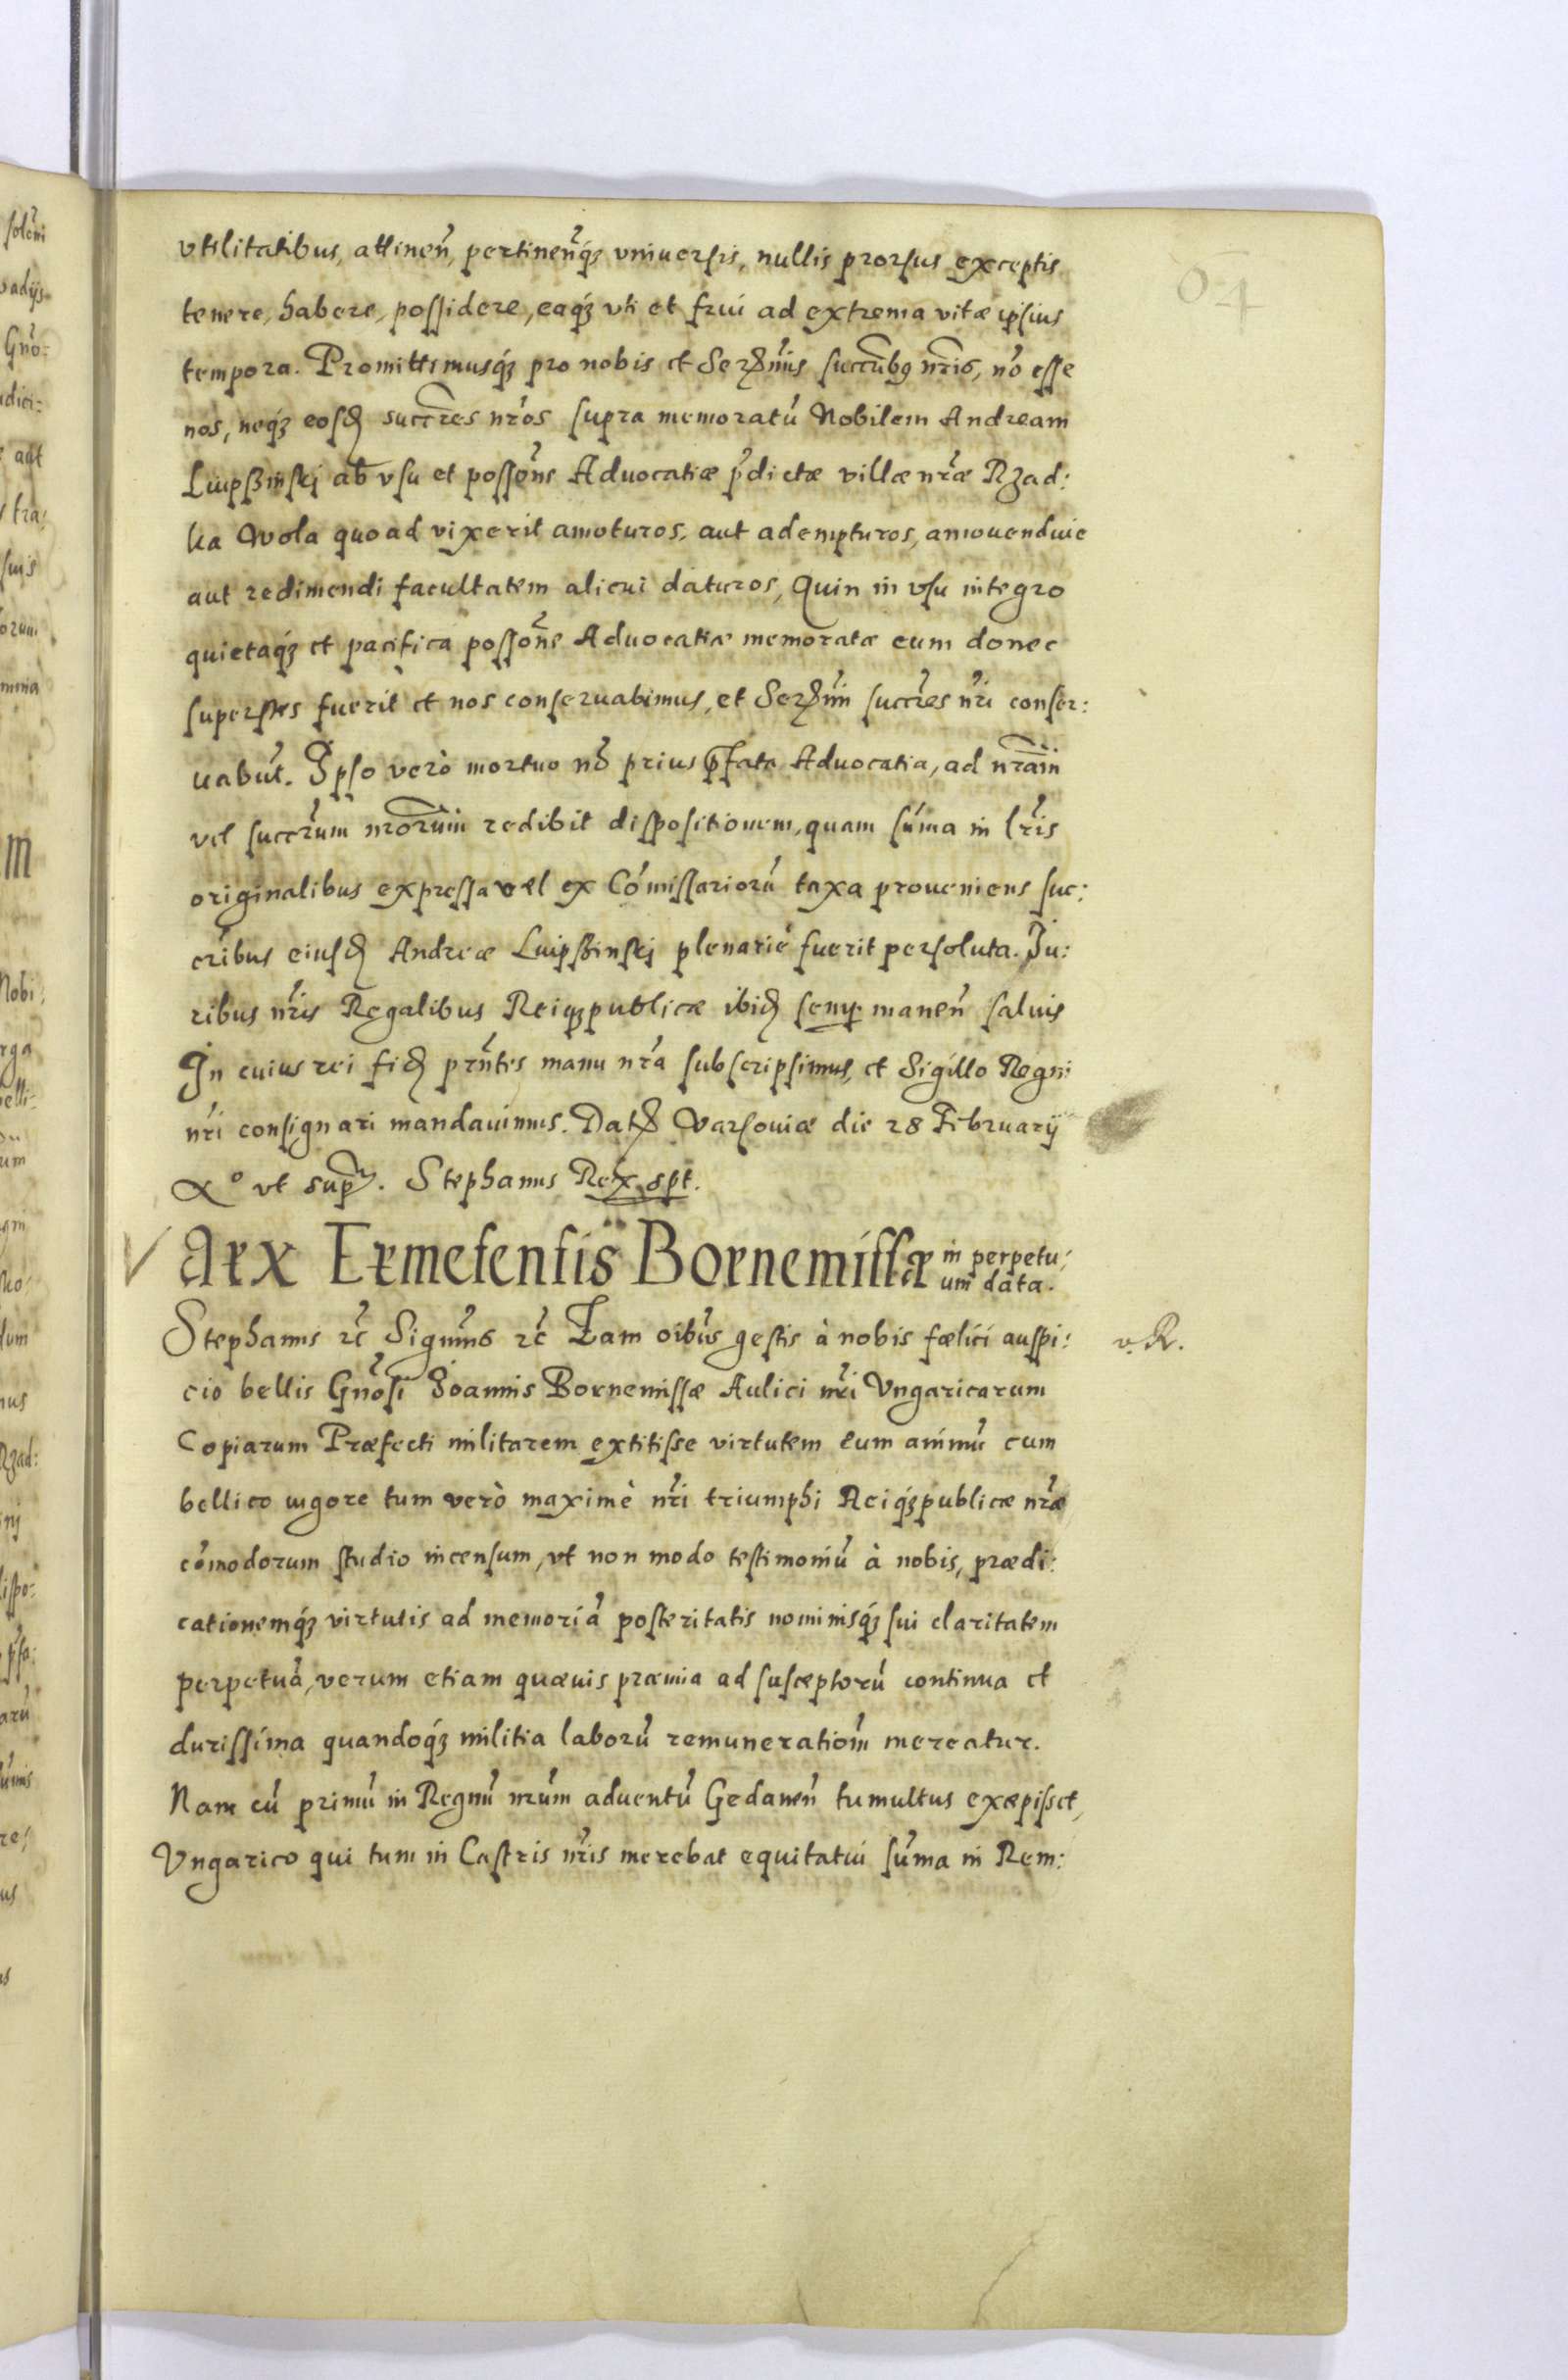 04
vtilitatibus, attineñ, pertineñq́ vniuersis, nullis prorsus exceptis
tenere, habere, possidere, eaq́ vti et frui ad extrema vitæ ipsius
tempora. Promittimusq́ pro nobis et succribus nris, nõ esse
nos, neq́ succres nros supra memoratũ Nobilem Andream
ab vsu et possone Aduocatiæ pdictæ villæ nræ Rzad:
ka Wola quoad vixerit amoturos, aut adempturos, amouendiuie
aut redimendi facultatem alicui daturos, Quin in vsu integro
quietaq́ et pacifica possone Aduocatiæ memoratæ eum donec
superstes fuerit et nos conseruabimus, et succres nri conser:
uabũt. Ipso verò mortuo nõ prius pfata Aduocatia, ad nram
vel succrum nrorum redibit dispositionem, quam sũma in lris
originalibus expressa vel ex Cõmissariorũ taxa proueniens suc:
cribus Andreæ plenariè fuerit persoluta. Iu:
ribus nris Regalibus Reiq́publicæ ibid semp maneñ saluis
In cuius rei fid pntes manu nra subscripsimus, et Sigillo Regni
nri consignari mandauimus. Dat Varsouiæ die 28 February
vt sup. Stephanus Rex spt.
Arx Ermesensis Bornemissæ in perpetu:
um data.
Stephanus rc rc Tam oibus gestis à nobis fœlici auspi:
v. R.
cio bellis Gnosi Ioannis Bornemissæ Aulici nri Vngaricarum
Copiarum Præfecti militarem extitisse virtutem eum animũ cum
bellico uigore tum verò maximè nri triumphi Reiq́publicæ nræ
cõmodorum studio incensum, vt non modo testimoniũ à nobis, prædi:
cationemq́ virtutis ad memoriã posteritatis nominisq́ sui claritatem
perpetuã, verum etiam quæuis præmia ad susceptorũ continua et
durissima quandoq́ militia laborũ remunerationm mereatur.
Nam cũ primũ in Regnũ nrum aduentũ Gedaneñ tumultus exæpisset,
Vngarico qui tum in Castris nris merebat equitatui sũma in Rem: